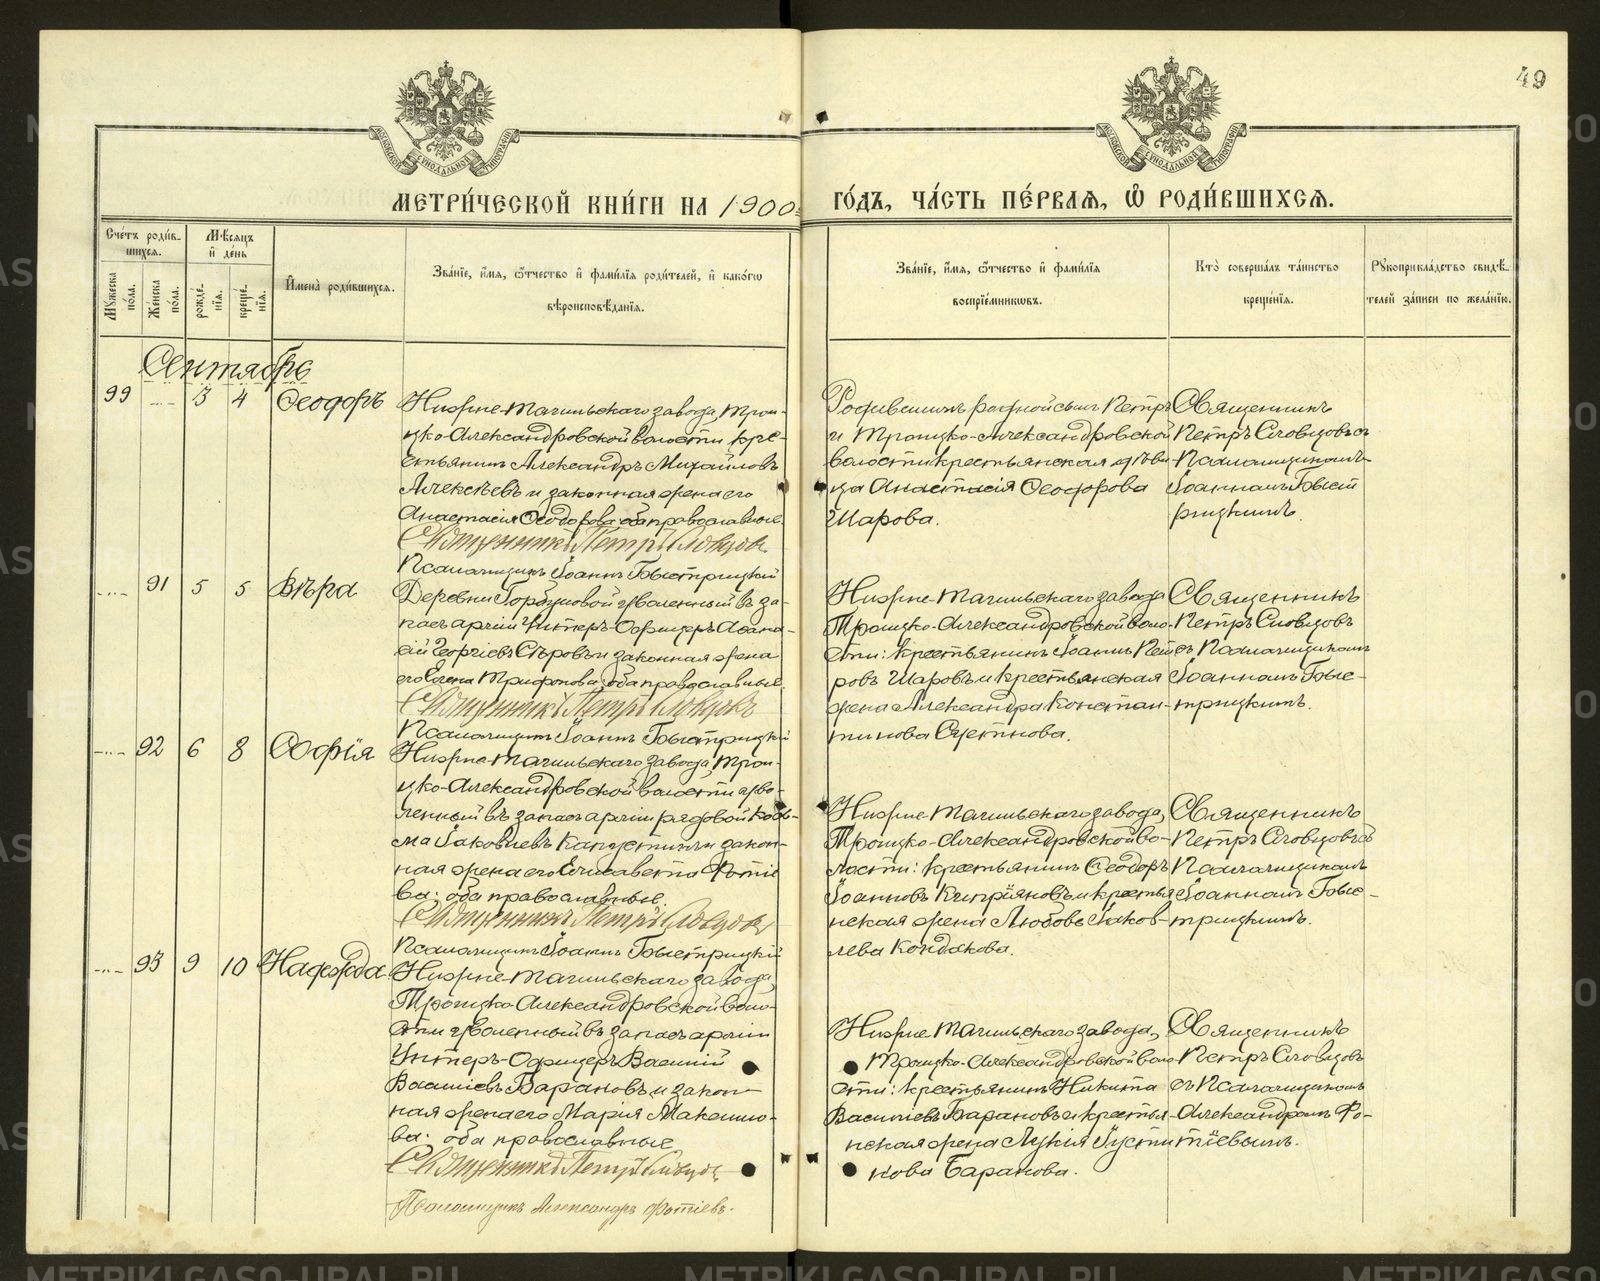 49
МОСКОВСКОЙ СѴНОДАЛЬНОЙ ТИПОГРАФІИ
МОСКОВСКОЙ СѴНОДАЛЬНОЙ ТИПОГРАФІИ
МЕТРИ́ЧЕСКОЙ КНИ́ГИ НА 1900
ГО́ДЪ, ЧА́СТЬ ПЕ́РВАѦ, Ѽ РОДИ́ВШИХСѦ.
Сче́тъ роди́в-
шихсѧ.
Мѣ́сѧцъ
и҆ де́нь
Мꙋ́жеска
по́ла.
Же́нска
по́ла.
рожде́-
нїѧ.
креще́-
нїѧ.
И҆мена̀ роди́вшихсѧ.
Зва́нїе, и҆́мѧ, ѻ҆́тчество и҆ фамі́лїѧ роди́телей, и҆ како́гѡ
вѣроисповѣ́данїѧ.
Зва́нїе, и҆́мѧ, ѻ҆́тчество и҆ фамі́лїѧ
воспрїе́мникѡвъ.
Кто̀ соверша́лъ та́инство
креще́нїѧ.
Рꙋкоприкла́дство свидѣ́-
телей за́писи по жела́нїю.
Сентябрь
99 3 4 Ѳеодоръ
Нижне-Тагильскаго завода, Трои-
цко-Александровской волости кре-
стьянинъ Александръ Михайловъ
Алексѣевъ и законная жена его
Анастасія Ѳеодорова, оба православные.
Священникъ Петръ Словцовъ
Псаломщикъ Іоаннъ Быстрицкій
Родившимъ родной сынъ Петръ
и Троицко-Александровской
волости крестьянская дѣви-
ца Анастасія Ѳеодорова
Шарова.
Священникъ
Петръ Словцовъ съ
Псаломщикомъ
Іоанномъ Быст
рицкимъ.
91 5 5 Вѣра
Деревни Горбуновой уволенный въ за-
пасъ арміи Унтеръ-Офицеръ Аѳана-
сій Георгіевъ Сѣровъ и законная жена
его Елена Трифонова, оба православные.
Священникъ Петръ Словцовъ
Псаломщикъ Іоаннъ Быстрицкій
Нижне-Тагильскаго завода
Троицко-Александровской воло-
сти: крестьянинъ Іоаннъ Пет
ровъ Шаровъ и крестьянская
жена Александра Констан-
тинова Сѫтнова.
Священникъ
Петръ Словцовъ
съ Псаломщикомъ
Іоанномъ Быс-
трицкимъ.
92 6 8 Софія
Нижне-Тагильскаго завода, Трои-
цко-Александровской волости уво-
ленный въ запасъ арміи рядовой Кось-
ма Іаковлевъ Капустинъ и закон-
ная жена его Елисавета Фотіе
ва; оба православные.
Священникъ Петръ Словцовъ
Псаломщикъ Іоаннъ Быстрицкій
Нижне-Тагильскаго завода,
Троицко-Александровской во-
лости: крестьянинъ Ѳеодоръ
Іоанновъ Кипріяновъ и крестья
нская жена Любовь Іаков-
лева Кондакова.
Священникъ
Петръ Словцовъ съ
Псаломщикомъ
Іоанномъ Быс-
трицкимъ.
93 9 10 Надежда
Нижне-Тагильскаго завода,
Троицко-Александровской воло-
сти уволенный въ запасъ арміи
Унтеръ-Офицеръ Василій
Васильевъ Барановъ и закон-
ная жена его Марія Максимо-
ва; оба православные
Священникъ Петръ Словцовъ
Псаломщикъ Александръ Фотіевъ.
Нижне-Тагильскаго завода,
Троицко-Александровской воло
сти: крестьянинъ Никита
Васильевъ Барановъ и крестья-
нская жена Лукія Іусти
нова Баранова.
Священникъ
Петръ Словцовъ
съ Псаломщикомъ
Александромъ Фо-
тіевымъ.
METRIKI.GASO-URAL.RU
METRIKI.GASO-URAL.RU